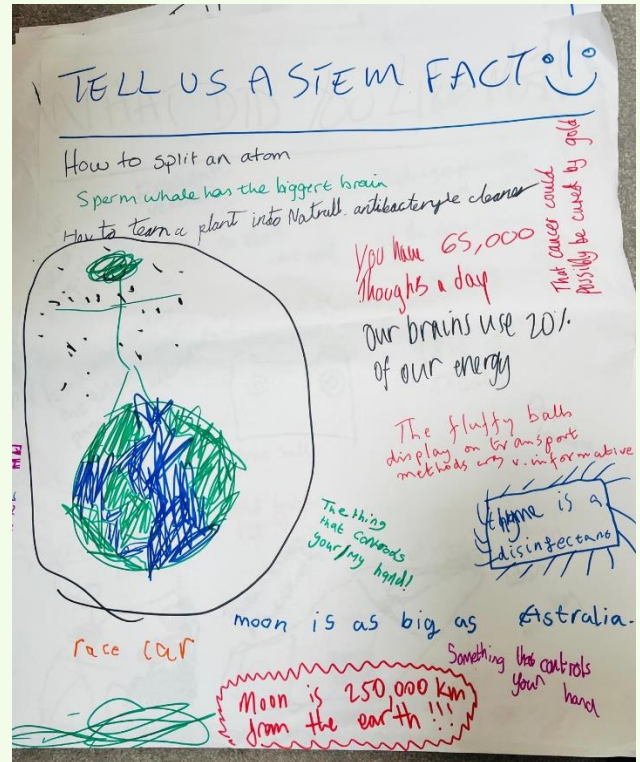 TELL US A STEM FACT
How to split an atom
Sperm whale has the biggest brain
How to tern a plant into Natrall antibacteryle cleaner
That cancer could
possibly be cured by gold
You have 65,000
thoughts a day
our brains use 20%
of our energy
The fluffy balls
display on transport
methods was v. informative
thyme is a
disinfectant
The thing
that controds
your/my hand!
moon is as big as Astralia.
race car
Something that controls
your hand
Moon is 250,000 km
from the earth!!!